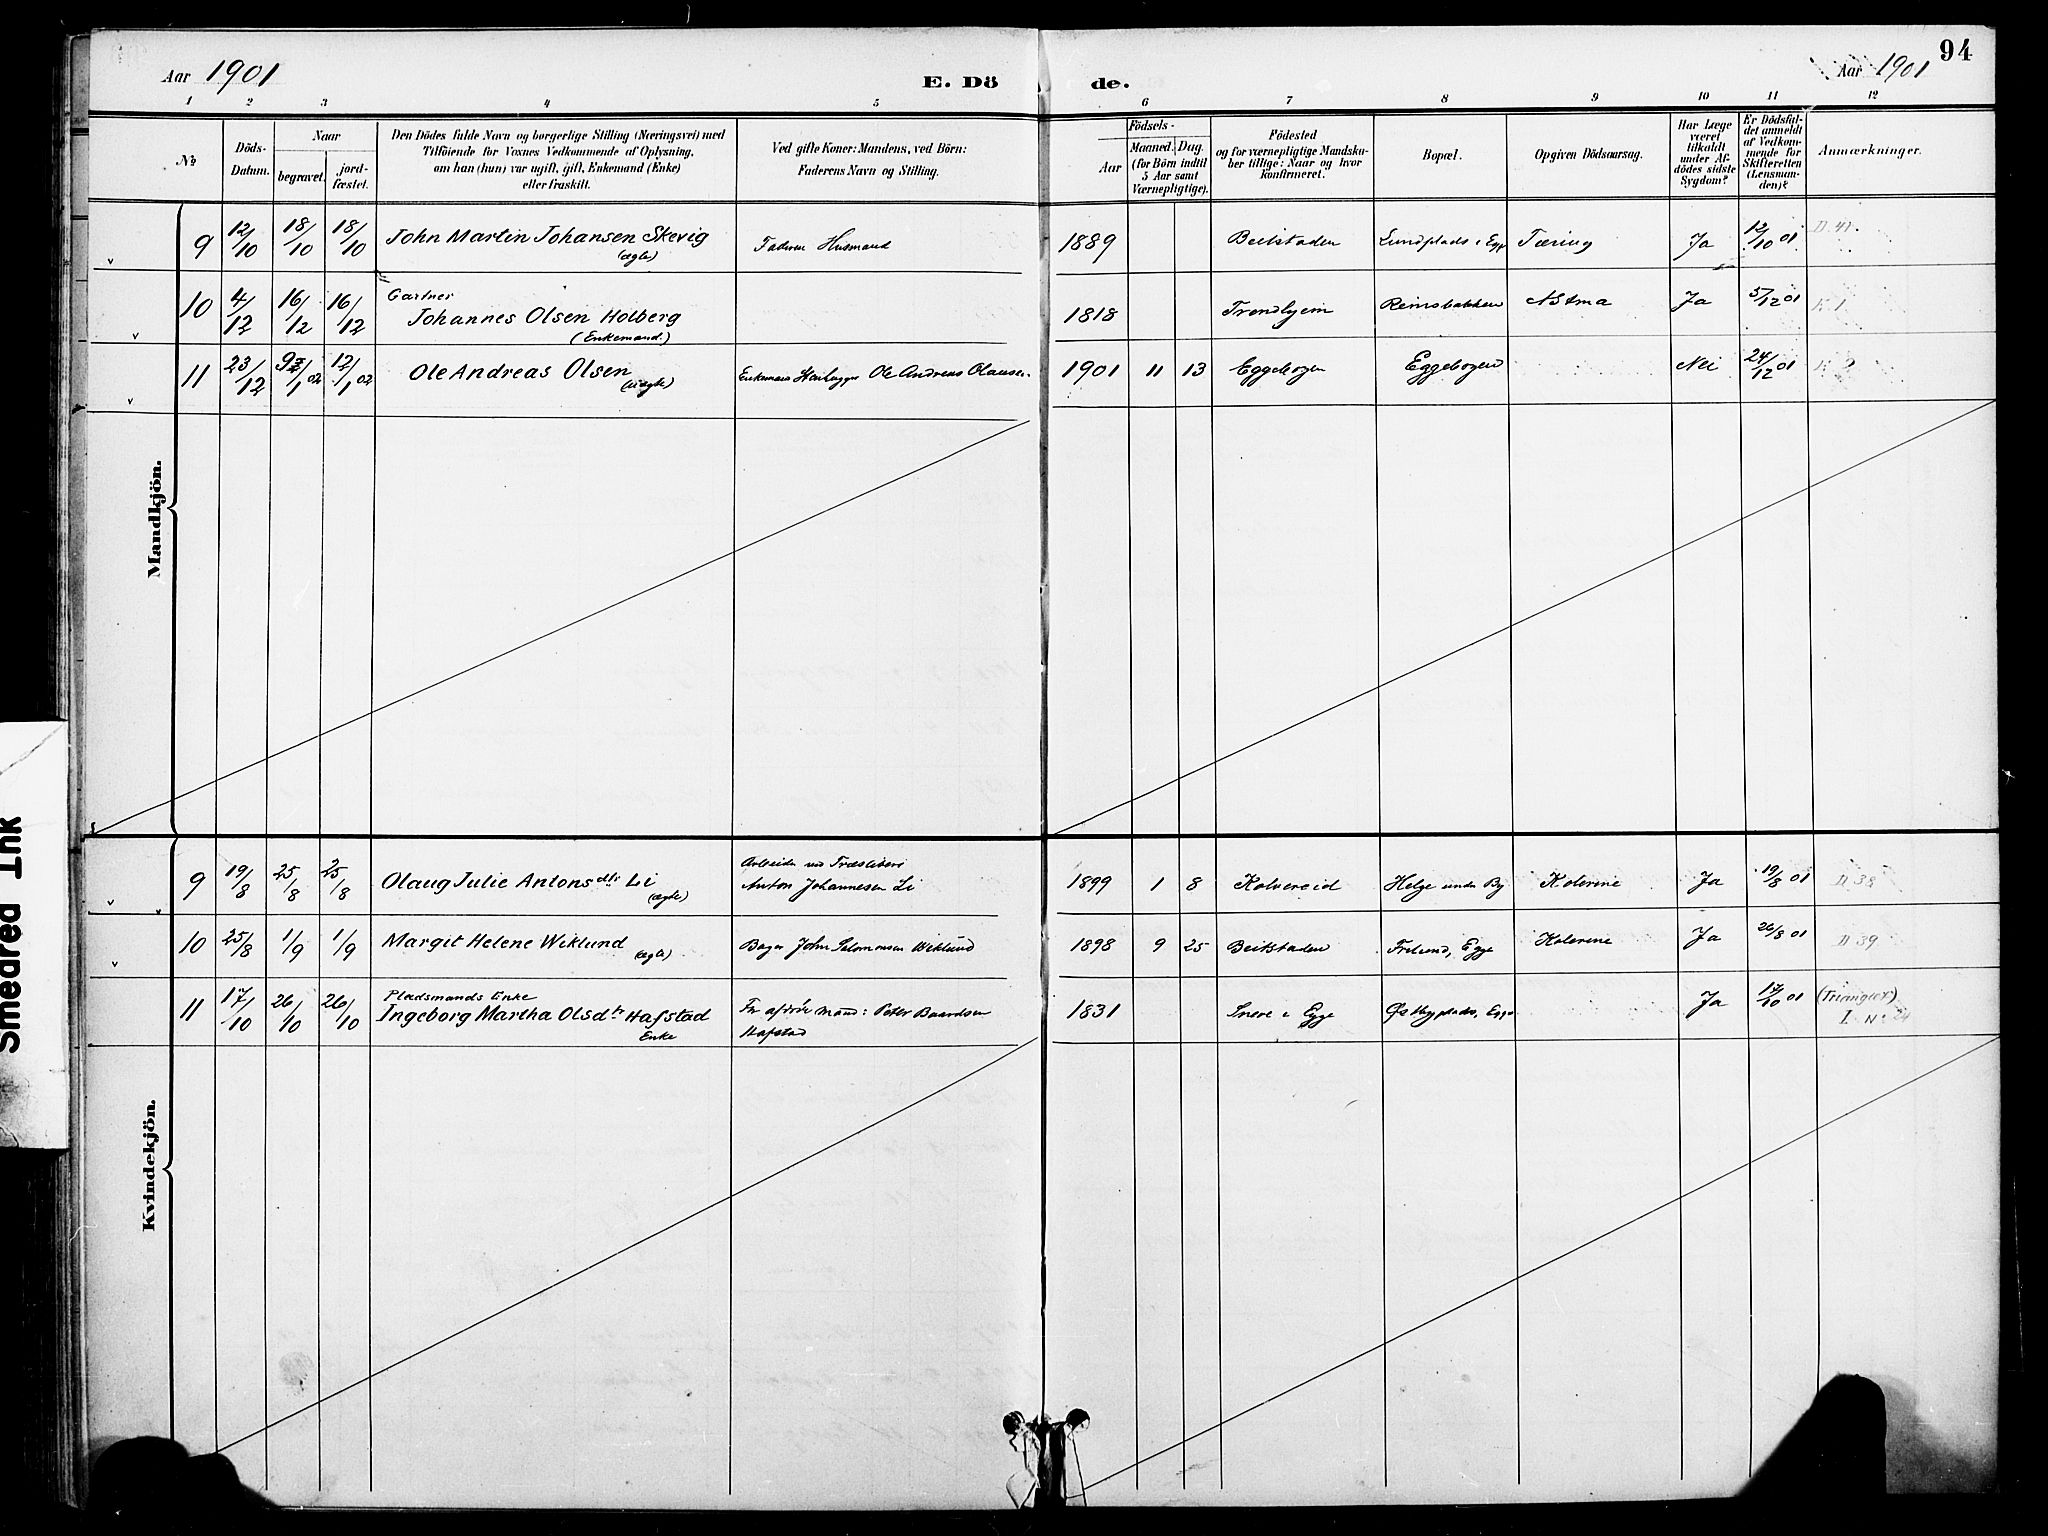 94
Aar 1901 E. Dö de. Aar 1901
1 2 3 4 5 6 7 8 9 10 11 12
No
Döds-Datum.
Naar
begravet.
jord-fæstet.
Den Dödes fulde Navn og borgerlige Stilling (Næringsvei) med
Tilföiende for Voxnes Vedkommende af Oplysning,
om han (hun) var ugift, gift, Enkemand (Enke)
eller fraskilt.
Ved gifte Koner: Mandens, ved Börn:
Faderens Navn og Stilling.
Födsels-
Aar
Maaned. Dag.
(for Börn indtil
5 Aar samt
Værnepligtige).
Födested
og for værnepligtige Mandska-
ber tillige: Naar og hvor
konfirmeret.
Bopæl.
Opgiven Dödsaarsag.
Har Læge
været
tilkaldt
under Af-
dödes sidste
Sygdom?
Er Dödsfal-
det anmeldt
af Vedkom-
mende for
Skifteretten
(Lensman-
den)?
Anmærkninger.
Mandkjön.
9 12/10 18/10 18/10 John Martin Johansen Skevig (ægte) Faderen Husmand 1889 Beitstaden Lundplads i Egge Tæring Ja 12/10 01 II 41
10 4/12 16/12 16/12 Gartner
Johannes Olsen Holberg (Enkemand.) 1818 Trondhjem Reinsbakken Astma Ja 5/12 01 K 1
11 23/12 12/1 02 Ole Andreas Olsen (uægte) Enkemand Ole Andreas Olausen. 1901 11 13 Eggebogen Eggebogen Nei 24/12 01 K 2
Kvindekjön.
9 19/8 25/8 25/8 Olaug Julie Antonsdtr Li (ægte) Arbeider ved Træsliberi
Anton Johannesen Li 1899 1 8 Kolvereid Helge under By Kolerine Ja 19/8 01 II 38
10 25/8 1/9 1/9 Margit Helene Wiklund (ægte) Bager John Salomonsen Wiklund 1898 9 25 Beitstaden Frilund, Egge Kolerine Ja 26/8 01 II 39
11 17/10 26/10 26/10 Pladsmands Enke
Ingeborg Martha Olsdtr Hafstad
Enke
Før afdöde Mand: Peter Baardsen
Hafstad 1831 Egge Østbyplads, Egge Ja 17/10 01 (Trianglet)
I No 24
Smeared Ink